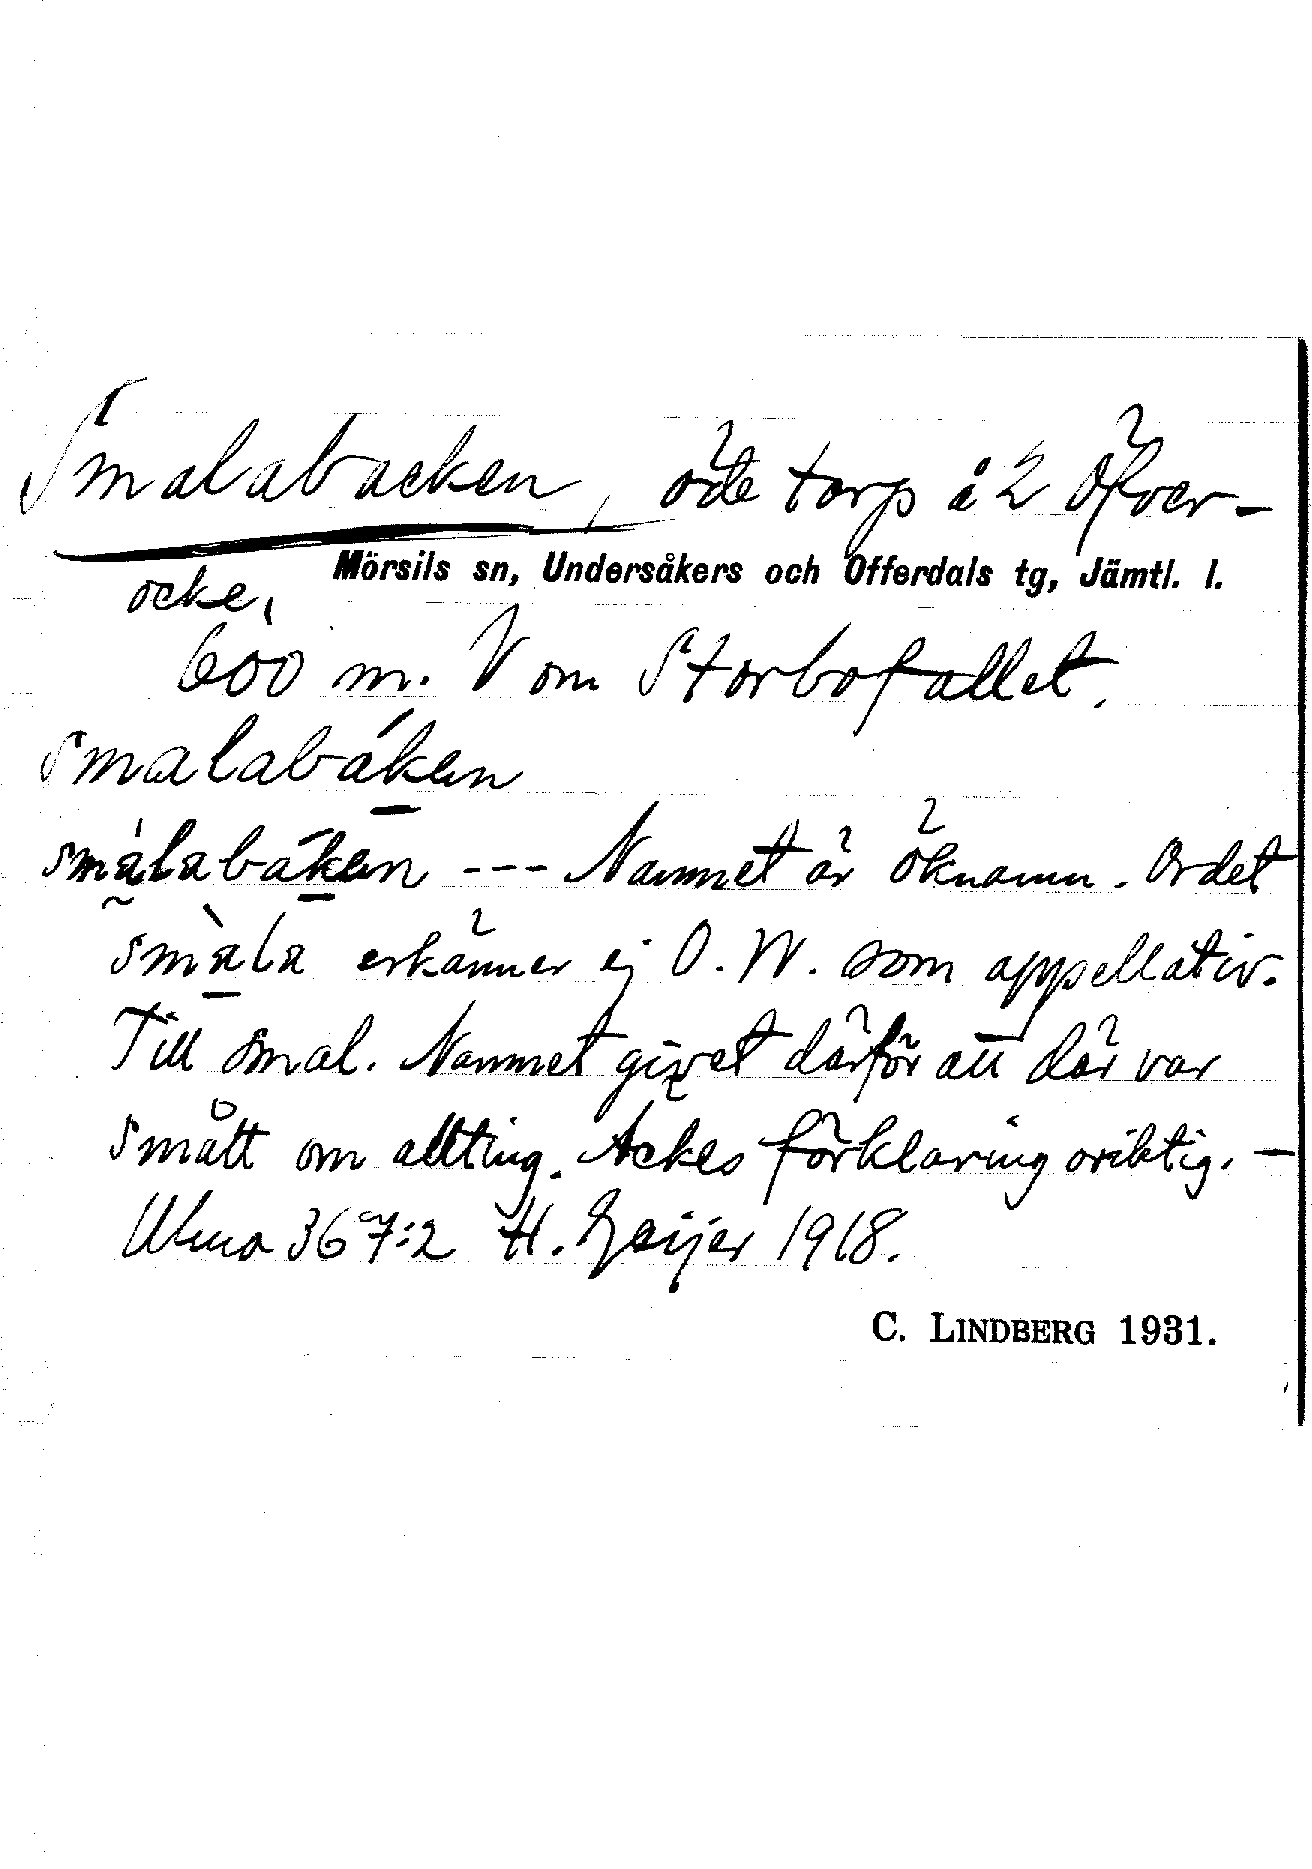 Smalabacken, öde torp å 2 Öfver-
Mörsils sn, Undersåkers och Offerdals tg, Jämtl. l.
ocke,
600 m. V om Storbofallet.
smalabáken
smàlabáken --- Namnet är öknamn. Ordet
smàla erkänner ej O. W. som appellativ.
Till smal. Namnet givet därför att där var
smått om allting. Ackes förklaring oriktig. —
Ulma 367:2 H. Geijer 1918.
C. LINDBERG 1931.